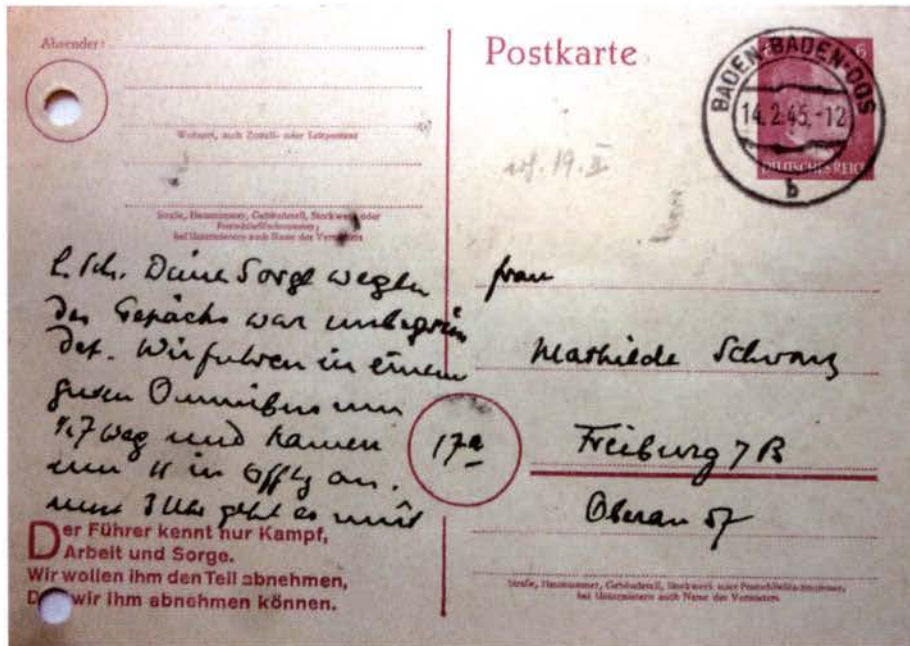 Absender:
Wohnort, auch Zustell- oder Leitpostamt
Straße, Hausnummer, Gebäudeteil, Stockwerk oder
Postschließfachnummer,
bei Untermietern auch Name des Vermieters
L. Sch. Deine Sorge wegen
des Gepäcks war unbegrün
det. Wir fuhren in einem
guten Omnibus um
7 weg und kamen
um 11 in Offbg an.
um 3 Uhr geht es mit
Der Führer kennt nur Kampf,
Arbeit und Sorge.
Wir wollen ihm den Teil abnehmen,
Den wir ihm abnehmen können.
Postkarte
6
BADEN-BADEN-OOS
14.2.45.-12
b
DEUTSCHES REICH
19. II
Frau
Mathilde Schwarz
17a
Freiburg 7 B
Oberau 57
Straße, Hausnummer, Gebäudeteil, Stockwerk oder Postschließfachnummer,
bei Untermietern auch Name des Vermieters